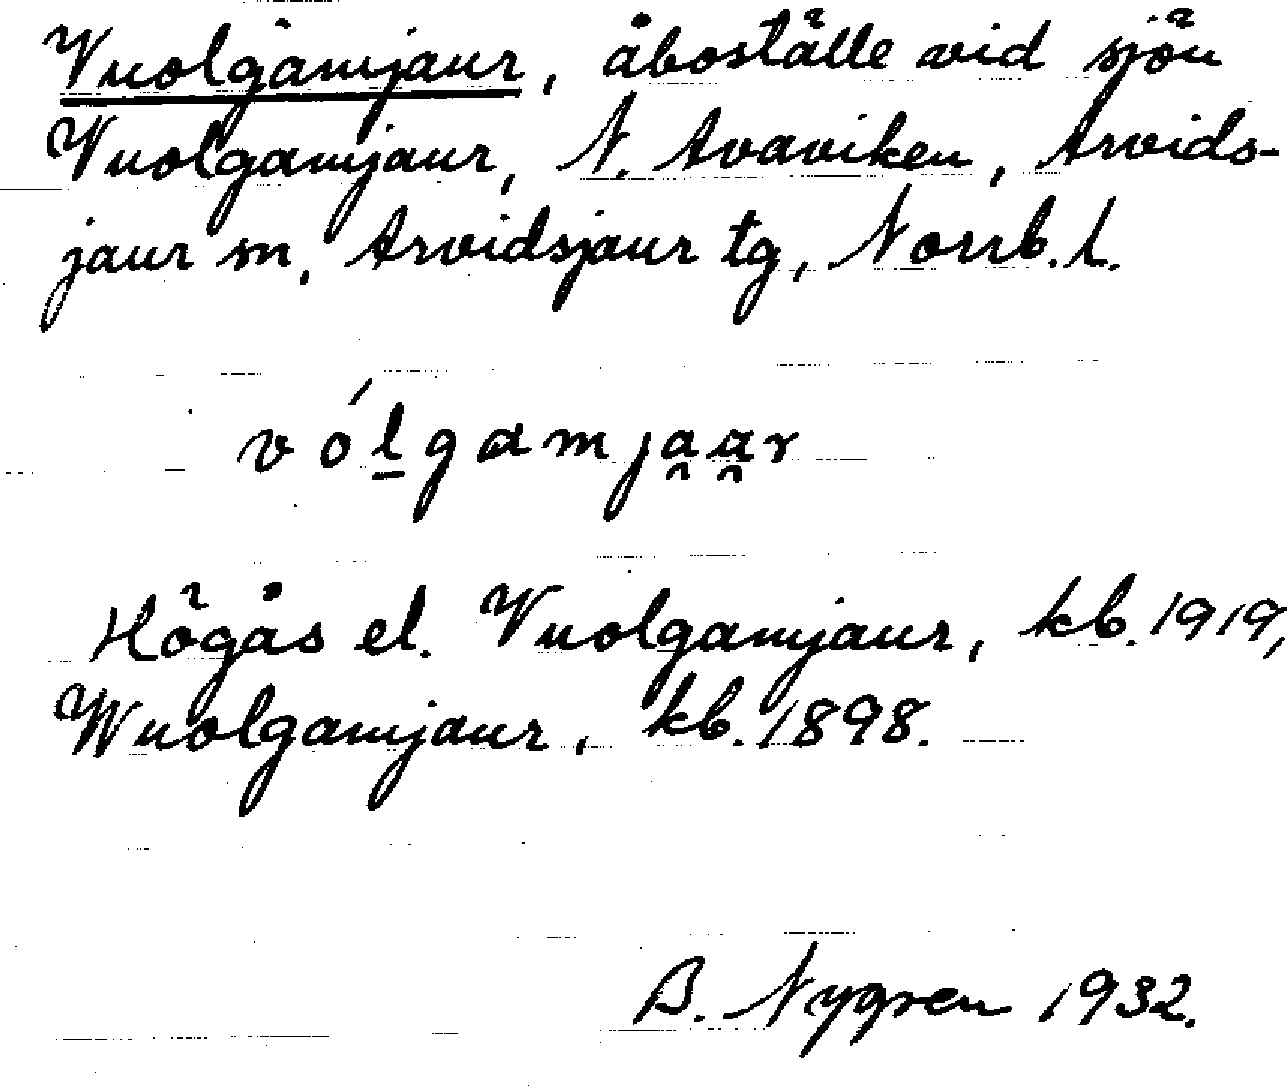 Vuolgamjaur, åboställe vid sjön
Vuolgamjaur, N. Avaviken, Arvids-
jaur sn, Arvidsjaur tg, Norrb. l.
vó́l̠gamja̯a̯r
Högås el. Vuolgamjaur, kb. 1919,
Wuolgamjaur, kb. 1898.
B. Nygren 1932.